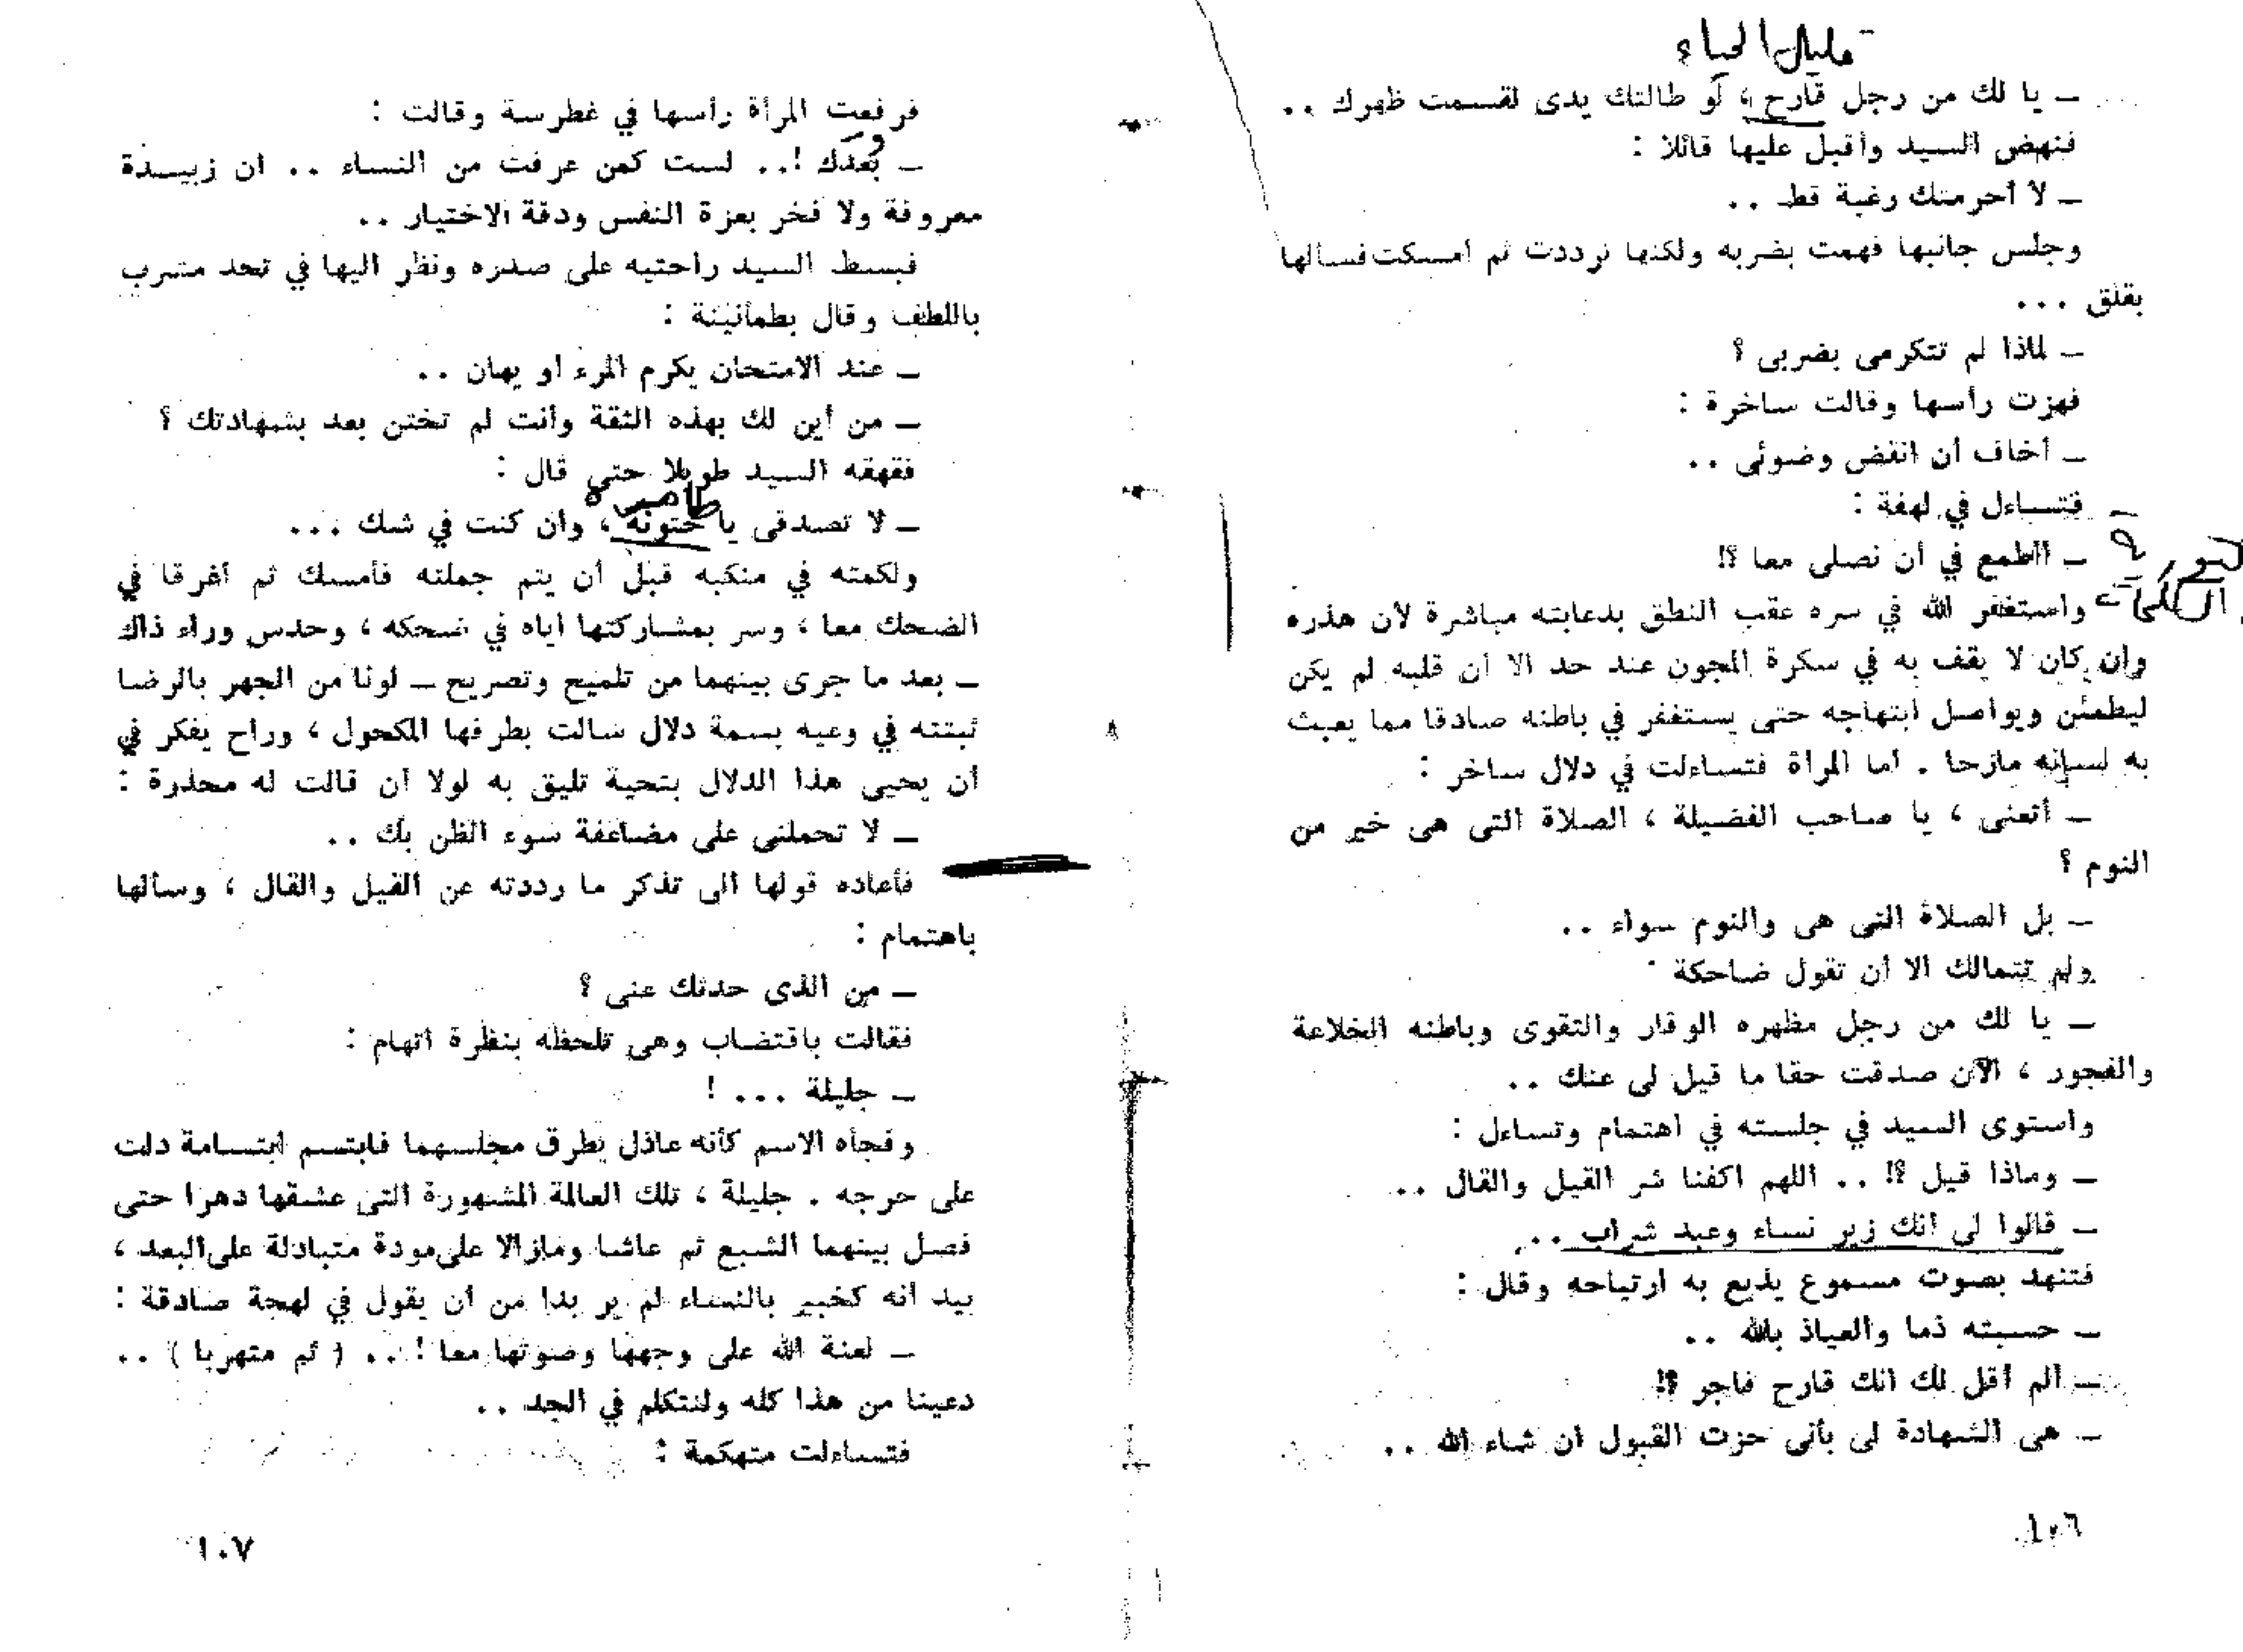 قليل الحيا؟
ـ يا لك من رجل قارح ، لو طالتك يدى لقسمت ظهرك ..
فنهض السيد وأقبل عليها قائلا :
ـ لا أحرمتك رغبة قط ..
وجلس جانبها فهمت بضربه ولكنها ترددت ثم أمسكت فسألها
بقلق ...
ـ لماذا لم تتكرمى بضربى ؟
فهزت رأسها وقالت ساخرة :
ـ أخاف أن انقض وضوئى ..
ـ فتساءل في لهفة :
ـ أأطمع في أن نصلى معا ؟!
واستغفر الله في سره عقب النطق بدعابته مباشرة لأن هذره
وان كان لا يقف به في سكرة المجون عند حد الا أن قلبه لم يكن
ليطمئن ويواصل ابتهاجه حتى يستغفر في باطنه صادقا مما يعبث
به لسانه مازحا . أما المرأة فتساءلت في دلال ساخر :
ـ أتعنى ، يا صاحب الفضيلة ، الصلاة التى هى خير من
النوم ؟
ـ بل الصلاة التى هى والنوم سواء ..
ولم تتمالك الا أن تقول ضاحكة :
ـ يا لك من رجل مظهره الوقار والتقوى وباطنه الخلاعة
والفجور ، الآن صدقت حقا ما قيل لى عنك ..
واستوى السيد في جلسته في اهتمام وتساءل :
ـ وماذا قيل ؟! .. اللهم اكفنا شر القيل والقال ..
ـ قالوا لى انك زير نساء وعبد شراب ..
فتنهد بصوت مسموع يذيع به ارتياحه وقال :
ـ حسبته ذما والعياذ بالله ..
ـ ألم أقل لك انك قارح فاجر ؟!
ـ هى الشهادة لى بأنى حزت القبول ان شاء الله ..
١٠٦
فرفعت المرأة رأسها في غطرسة وقالت :
ـ بعدك !.. لست كمن عرفت من النساء .. ان زبيدة
معروفة ولا فخر بعزة النفس ودقة الاختيار ..
فبسط السيد راحتيه على صدره ونظر اليها في تحد مشرب
باللطف وقال بطمأنينة :
ـ عند الامتحان يكرم المرء أو يهان ..
ـ من أين لك بهذه الثقة وأنت لم تختن بعد بشهادتك ؟
فقهقه السيد طويلا حتى قال :
ـ لا تصدقى يا ختونة ، وان كنت في شك ...
ولكمته في منكبه قبل أن يتم جملته فأمسك ثم أغرقا في
الضحك معا ، وسر بمشاركتها اياه في ضحكه ، وحدس وراء ذاك
ـ بعد ما جرى بينهما من تلميح وتصريح ـ لونا من الجهر بالرضا
ثبتته في وعيه بسمة دلال شالت بطرفها المكحول ، وراح يفكر في
أن يحيى هذا الدلال بتحية تليق به لولا أن قالت له محذرة :
ـ لا تحملنى على مضاعفة سوء الظن بك ..
فأعاده قولها الى تذكر ما رددته عن القيل والقال ، وسألها
باهتمام :
ـ من الذى حدثك عنى ؟
فقالت باقتضاب وهى تلحظه بنظرة اتهام :
ـ جليلة ... !
وفجأه الاسم كأنه عاذل يطرق مجلسهما فابتسم ابتسامة دلت
على حرجه . جليلة ، تلك العالمة المشهورة التى عشقها دهرا حتى
فصل بينهما الشبع ثم عاشا ومازالا على مودة متبادلة على البعد ،
بيد أنه كخبير بالنساء لم ير بدا من أن يقول في لهجة صادقة :
ـ لعنة الله على وجهها وصوتها معا ! .. ( ثم متهربا ) ..
دعينا من هذا كله ولنتكلم في الجد ..
فتساءلت متهكمة :
١٠٧